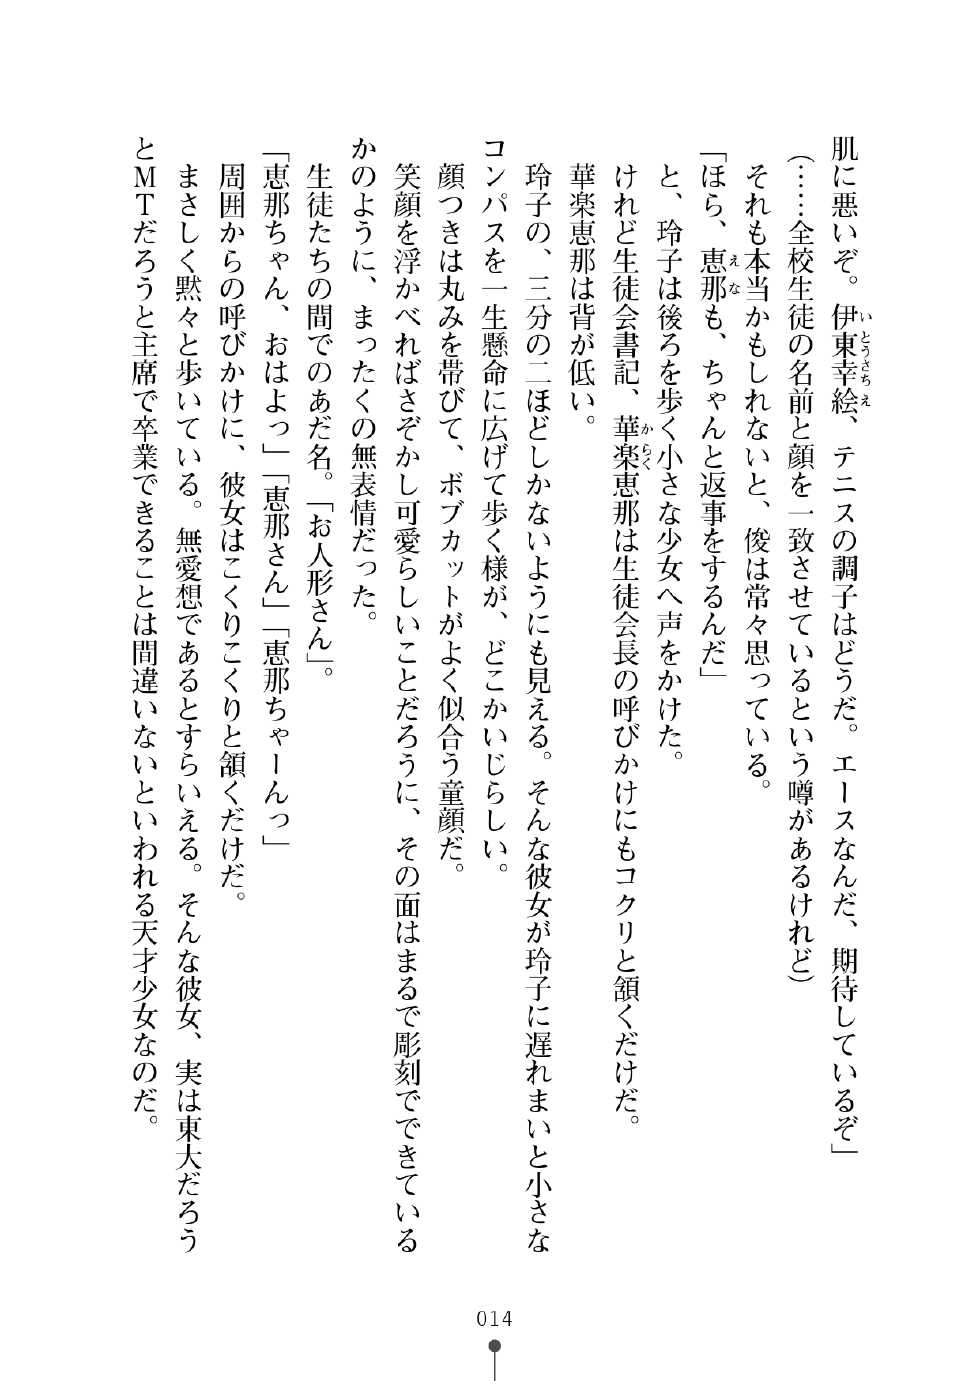 肌に悪いぞ。伊東幸絵、テニスの調子はどうだ。エースなんだ、期待しているぞ」
（……全校生徒の名前と顔を一致させているという噂があるけれど）
それも本当かもしれないと、俊は常々思っている。
「ほら、恵那も、ちゃんと返事をするんだ」
と、玲子は後ろを歩く小さな少女へ声をかけた。
けれど生徒会書記、華楽恵那は生徒会長の呼びかけにもコクリと頷くだけだ。
華楽恵那は背が低い。
玲子の、三分の二ほどしかないようにも見える。そんな彼女が玲子に遅れまいと小さな
コンパスを一生懸命に広げて歩く様が、どこかいじらしい。
顔つきは丸みを帯びて、ボブカットがよく似合う童顔だ。
笑顔を浮かべればさぞかし可愛らしいことだろうに、その面はまるで彫刻でできている
かのように、まったくの無表情だった。
生徒たちの間でのあだ名。「お人形さん」。
「恵那ちゃん、おはよっ」「恵那さん」「恵那ちゃーんっ」
周囲からの呼びかけに、彼女はこくりこくりと頷くだけだ。
まさしく黙々と歩いている。無愛想であるとすらいえる。そんな彼女、実は東大だろう
とＭＴだろうと主席で卒業できることは間違いないといわれる天才少女なのだ。
014